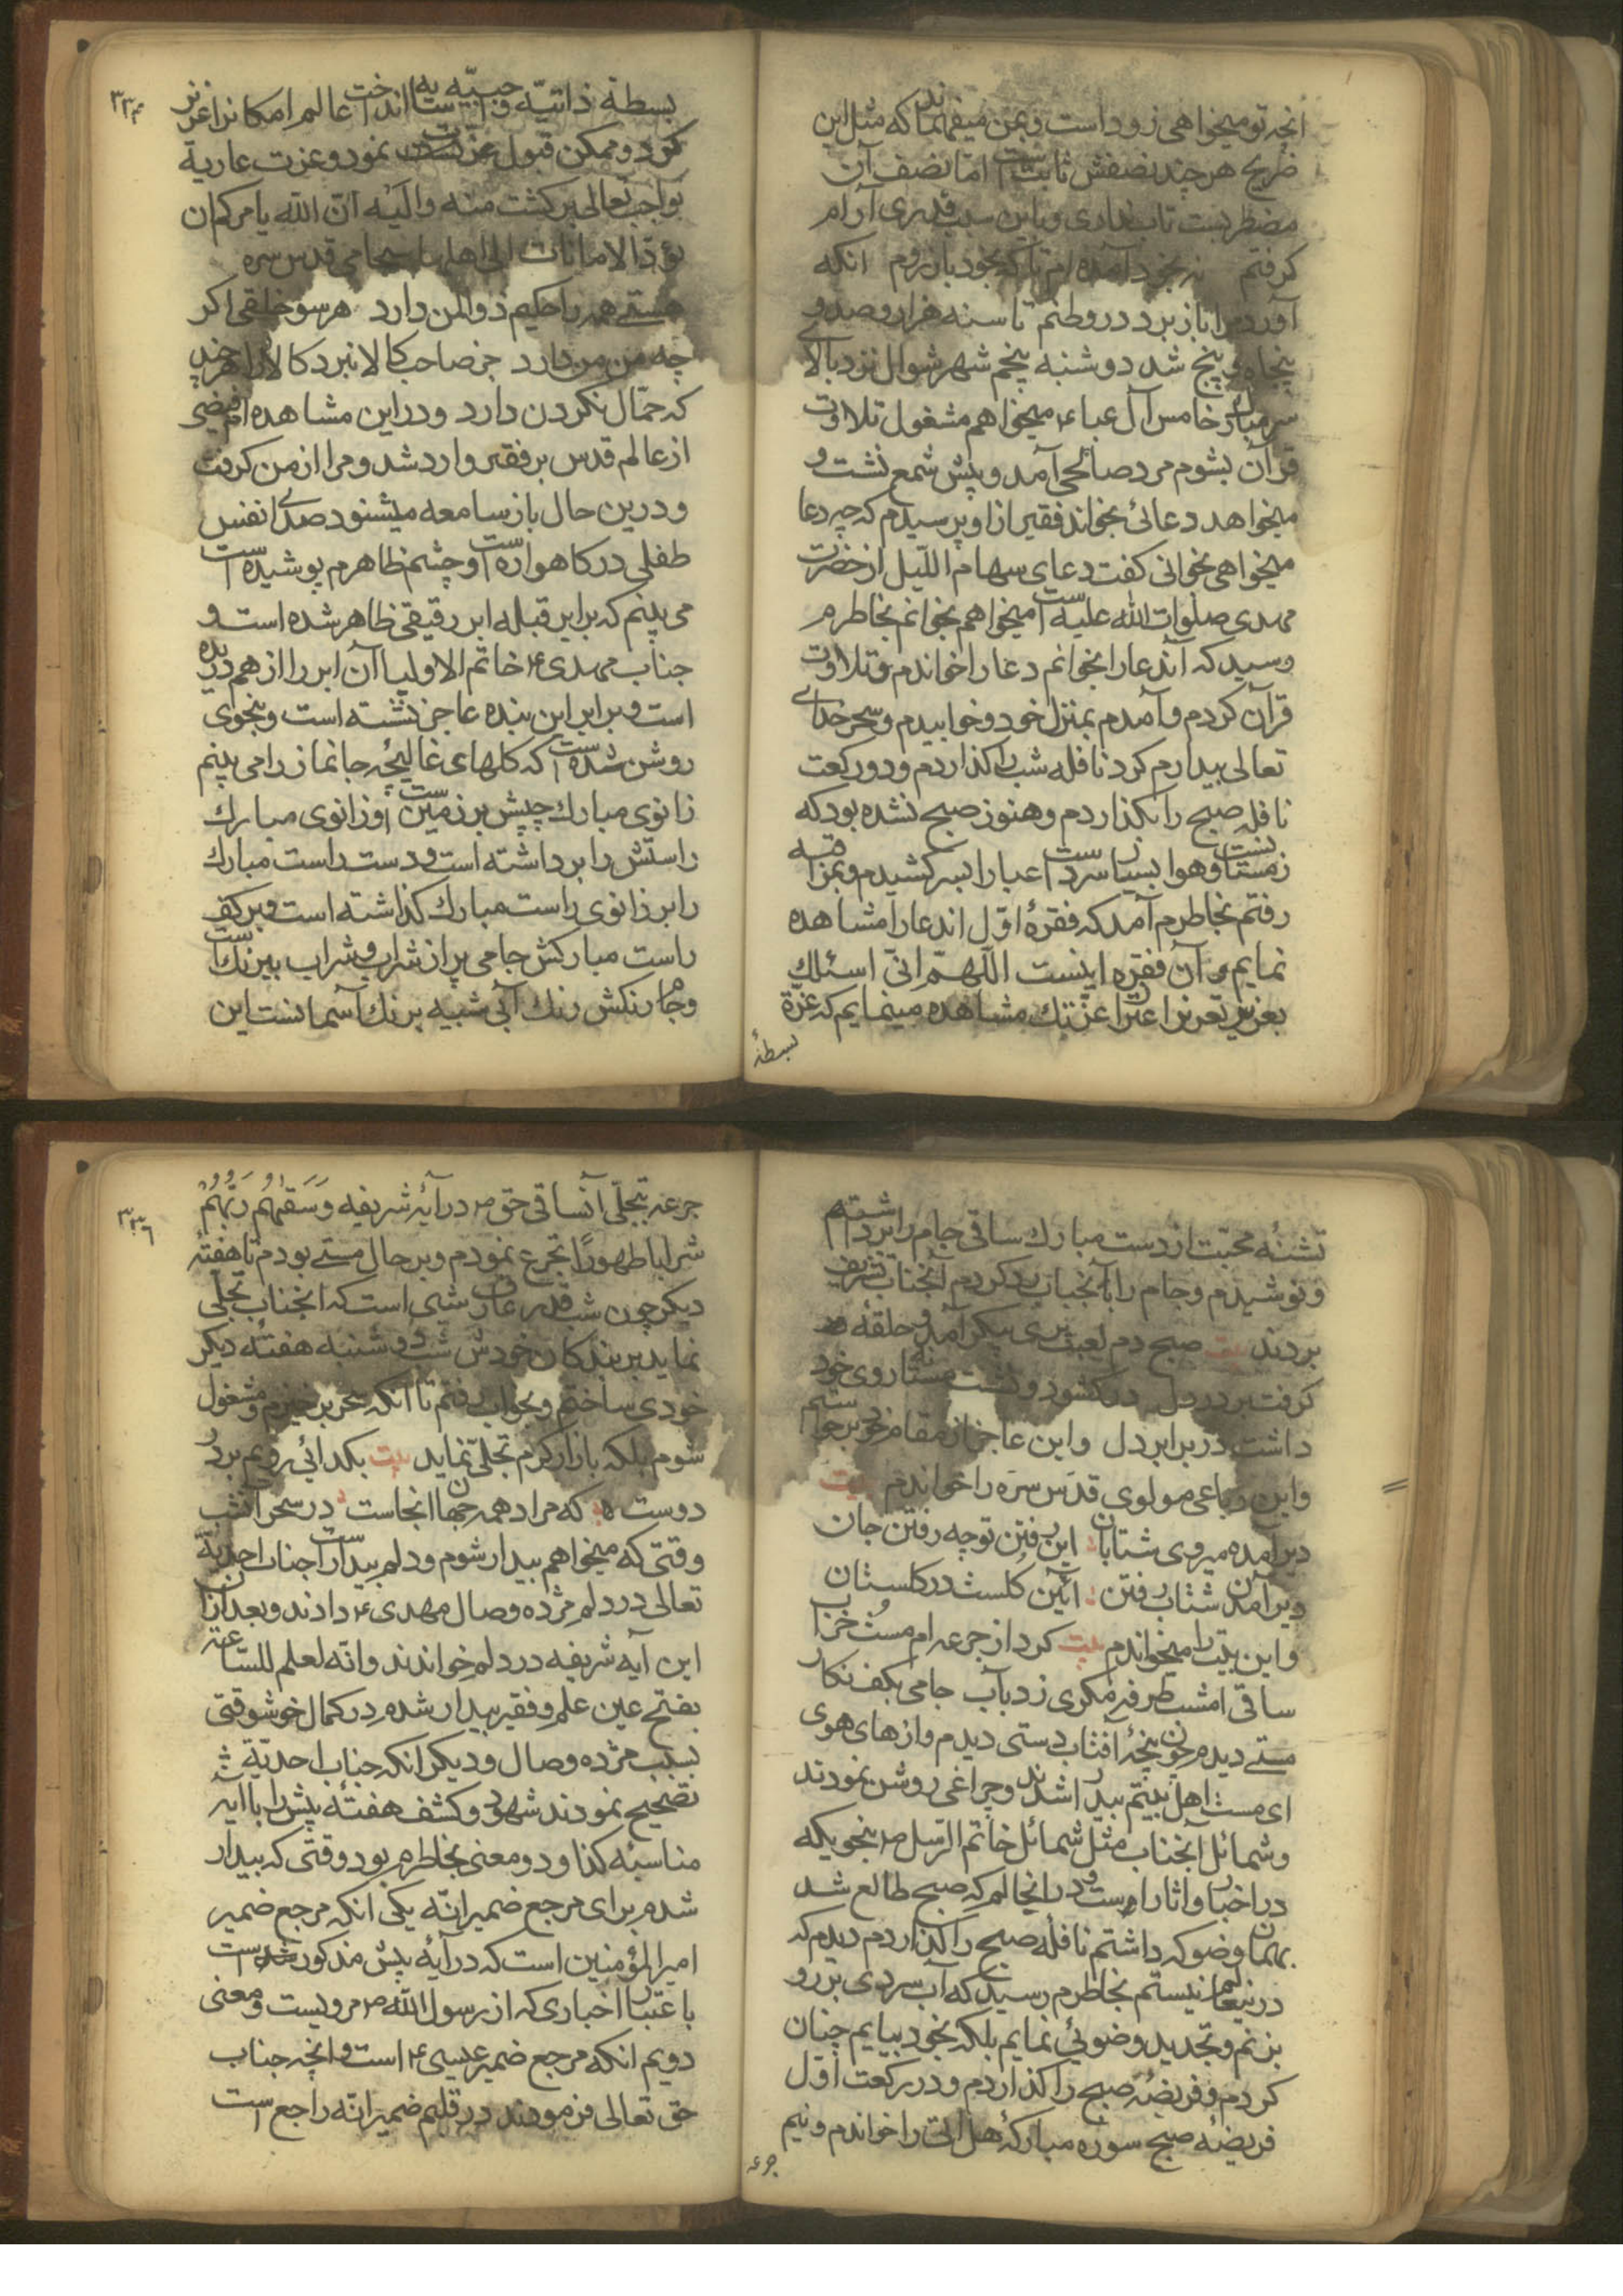 انچه تو میخواهی زود است و بمن میفهمانند که مثل این
ضریح هر چند نصفش ثابت است اما نصف آن
مضطربست تاب نداری و باین سبب قدری آرام
کرفتم نه بخود آمده ام تا که بخود باز روم انکه
آورد مرا باز برد در وطنم تا سنه هزار و صد و
پنجاه و پنج شد دوشنبه پنجم شهر شوال نزد بالای
سر مبارک خامس آل عباء ع میخواهم مشغول تلاوت
قرآن بشوم مرد صالحی آمد و پیش شمع نشت و
میخواهد دعائی بخواند فقیر از او پرسیدم که چه دعا
میخواهی بخوانی کفت دعای سهام اللّیل از حضرت
مهدی صلوات الله علیه است میخواهم بخوانم بخاطرم
رسید که آندعا را بخوانم دعا را خواندم و تلاوت
قرآن کردم و آمدم بمنزل خود و خوابیدم و سحر خدای
تعالی بیدارم کرد نافله شب را کذاردم و دو رکعت
نافله صبح را بکذاردم و هنوز صبح نشده بود که
زمستانست و هوا بسیار سرد است عبا را بسر کشیدم و بمراقبه
رفتم بخاطرم آمد که فقرهٔ اوّل اندعا را مشاهده
نمایم و آن فقره اینست اللّهمّ انّی اسئلك
بعزیز تعزیز اعتزاز عزّتك مشاهده مینمایم که عزّة
بسطهٔ
۳۳۴
بسطهٔ ذاتیّه و حبیّه به است انداخت عالم امکانرا عزیز
کرد و ممکن قبول عزّت نمود و عزت عاریة
بواجب تعالی برکشت منه والَیْه انّ الله یامرکم ان
تؤدّ الامانات الی اهلها جامی قدس سره
هستی همه را حکیم ذوالمن دارد هر سو خلقی اکر
چه من من دارد جز صاحب کالا نبرد کالا را هر چند
که حمّال نکردن دارد و در این مشاهده ام فیضی
از عالم قدس بر فقیر وارد شد و مرا از من کرفت
و درین حال باز سامعه میشنود صدای انفس
طفلی در کاهواره است و چشم ظاهرم پوشیده است
می بینم که برابر قبله ابر رقیقی ظاهر شده است و
جناب مهدی ع خاتم الاولیا آن ابر را از هم دریده
است و برابر این بنده عاجز نشته است و بنحوی
روشن شده است که کلهای غالیچه جانماز را می بینم
زانوی مبارك چپش بر زمین است و زانوی مبارك
راستش را برداشته است و دست راست مبارك
را بر زانوی راست مبارك کذاشته است و بر کف
راست مبارکش جامی پر از شراب و شراب بیرنك است
و جام رنکش رنك آبی شبیه برنك آسمانست این
تشنهٔ محبّت از دست مبارك ساقی جام را برداشتم
و نوشیدم و جام را بآنجناب رد کردم آنجناب تشریف
بردند بیت صبح دم لعبت پری پیکر آمد و حلقهٔ
کرفت بر در دل در کشود و نشست مستانه روی خود
داشت در برابر دل و این عاجز از مقام خود برخواستم
و این رباعی مولوی قدّس سرَه را خواندم بیت
دیر آمده میروی شتابان این رفتن تو چه رفتن جان
دیر آمدن شتاب رفتن آئین کلست در کلستان
و این بیت را میخواندم بیت کرد از جرعه ام مست خراب
ساقی امشب طرفه مکری زد بآب جامی بکف نکار
مستی دیدم چون پنجهٔ آفتاب دستی دیدم و از های هوی
ای مست اهل بیتم بیدار شدند و چراغی روشن نمودند
و شمائل آنجناب مثل شمائل خاتم الرّسل ص بنحویکه
در اخبار و اثار است و در اینحالم که صبح طالع شد
بهمان وضو که داشتم نافلهٔ صبح را کذاردم دیدم که
در نیعالم نیستم بخاطرم رسید که آب سردی بر رو
بزنم و تجدید وضوئی نمایم بلکه بخود بیایم چنان
کردم و فریضهٔ صبح را کذاردم و در رکعت اول
فریضهٔ صبح سوره مبارکهٔ هل اتی را خواندم و نیم
جرعه
۳۳۶
جرعه تجلّی آنساقی حق ص در آیهٔ شریفه وَسَقیهُم رَبُّهُمْ
شرابا طهورًا تجرع نمودم و بر حال مستی بودم تا هفتهٔ
دیکر چون شب قدر عارف شبی است که انجناب تجلّی
نماید بر بندکان خودش شب دوشنبه هفتهٔ دیکر
خودی ساختم و بخواب رفتم تا آنکه سحر برخیزم و مشغول
شوم بلکه باز از کرم تجلّی نماید بیت بکدائی رویم بر در
دوست که مراد همه جهان انجاست در سحر آنشب
وقتی که میخواهم بیدار شوم و دلم بیدار است جناب احدیّة
تعالی در دلم مژده وصال مهدی ع دادند و بعد از آن
این آیه شریفه در دلم خواندند وانّه لعلم للسّاعة
بفتح عین علم و فقیر بیدار شدم در کمال خوشوقتی
بسبب مژده وصال و دیکر انکه جناب احدیّة
تصحیح نمودند شهود و کشف هفتهٔ پیش را با آیه
مناسبه کذا و دو معنی بخاطرم بود وقتی که بیدار
شدم برای مرجع ضمیر انّه یکی انکه مرجع ضمیر
امیر المؤمنین است که در آیهٔ پیش مذکور شده است
با عتبار اخباری که از رسول الله ص مرویست و معنی
دویم انکه مرجع ضمیر عیسی ع است و انچه جناب
حق تعالی فرمودند در قلبم ضمیر انّه راجع است